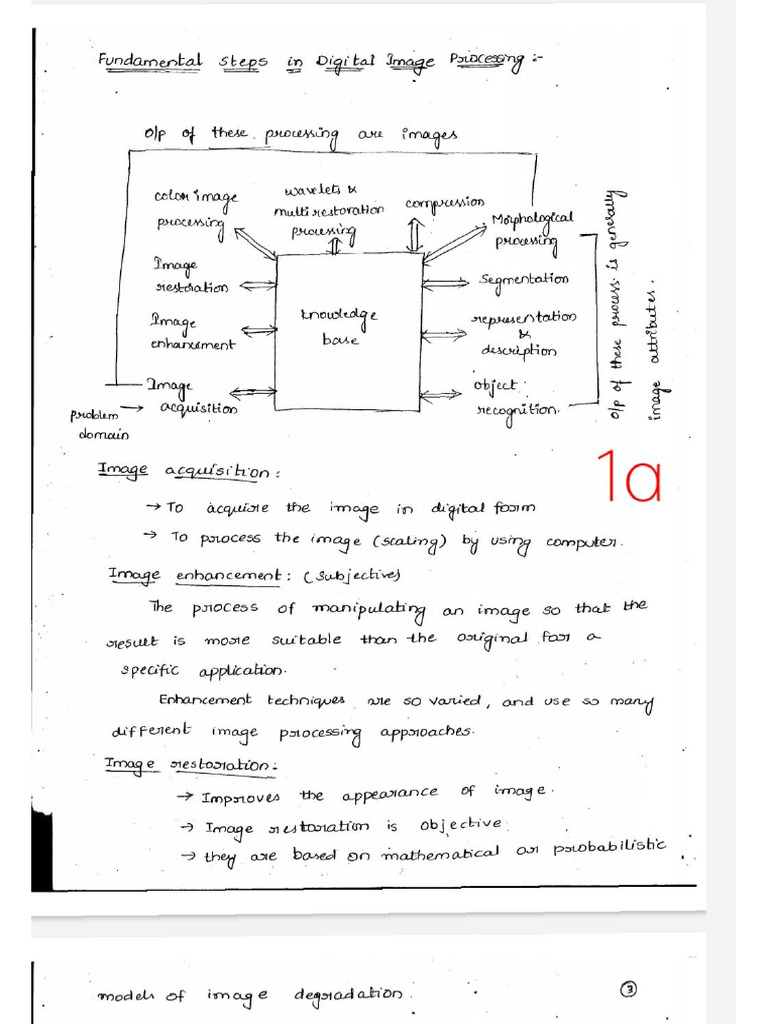 Fundamental Steps in Digital Image Processing :-
O/p of these processing are images
color image
processing
wavelets &
multi restoration
processing
compression
Morphological
processing
Image
restoration
Segmentation
Image
enhancement
knowledge
base
representation
&
description
Image
acquisition
object
recognition.
problem
domain
O/p of these process is generally
image attributes.
1a
Image acquisition :
→ To acquire the image in digital form
→ To process the image (scaling) by using computer.
Image enhancement : (Subjective)
The process of manipulating an image so that the
result is more suitable than the original for a
specific application.
Enhancement techniques are so varied, and use so many
different image processing approaches.
Image restoration :
→ Improves the appearance of image.
→ Image restoration is objective.
→ they are based on mathematical or probabilistic
models of image degradation.
3